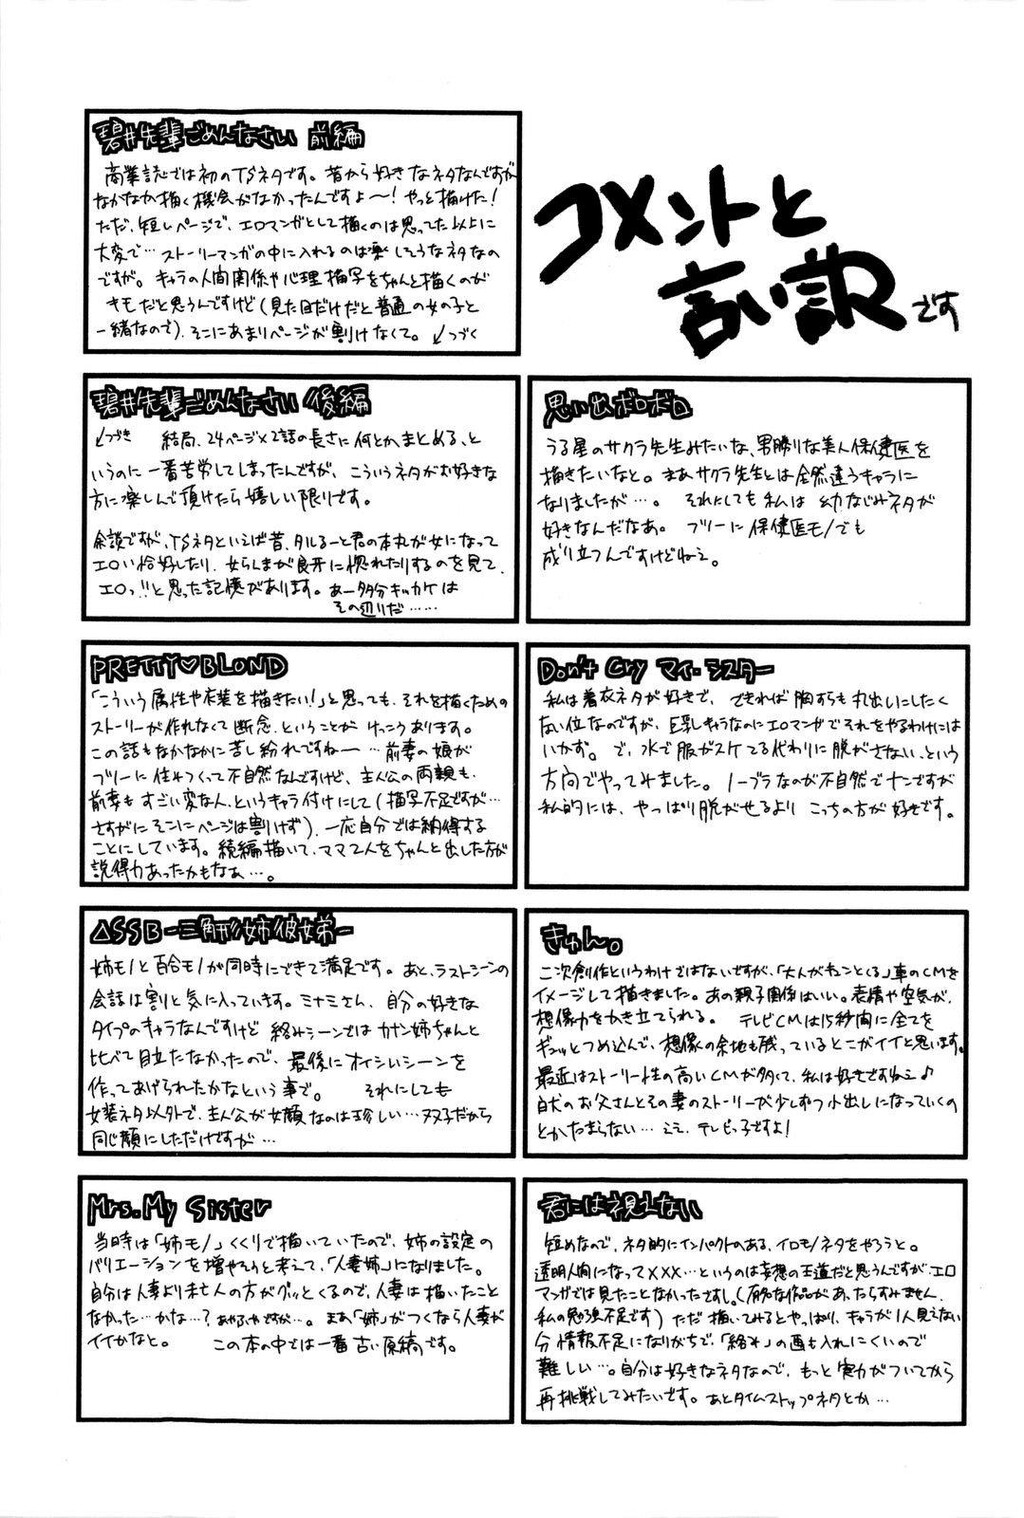 コメントと
言い訳です
碧井先輩ごめんなさい 前編
商業誌では初のTSネタです。昔から好きなネタなんですが
なかなか描く機会がなかったんですよ〜!やっと描けた!
ただ、短いページで、エロマンガとして描くのは思ってた以上に
大変で…ストーリーマンガの中に入れるのは楽しそうなネタなの
ですが。キャラの人間関係や心理描写をちゃんと描くのが
キモだと思うんですけど(見た目だけだと普通の女の子と
一緒なので)、そこにあまりページが割けなくて。↙つづく
碧井先輩ごめんなさい 後編
↖つづき 結局、24ページ×2話の長さに何とかまとめる、と
いうのに一番苦労してしまったんですが、こういうネタがお好きな
方に楽しんで頂けたら嬉しい限りです。
余談ですが、TSネタといえば昔、タルるート君の本丸が女になって
エロい格好したり、女らしまが良牙に惚れたりするのを見て、
エロっ!!と思った記憶があります。あー多分キッカケは
その辺りだ……
思い出ボロボロ
うる星のサクラ先生みたいな、男勝りな美人保健医を
描きたいなと。まあサクラ先生とは全然違うキャラに
なりましたが…。 それにしても私は幼なじみネタが
好きなんだなあ。 フリーに保健医モノでも
成り立つんですけどねえ。
PRETTY♡BLOND
「こういう属性や衣装を描きたい!」と思っても、それを描くための
ストーリーが作れなくて断念、ということがけっこうあります。
この話もなかなかに苦し紛れですねー…前妻の娘が
フリーに住みつくって不自然なんですけど、主人公の両親も、
前妻もすごい変な人、というキャラ付けにして(描写不足ですが…
さすがにそこにページは割けず)、一応自分では納得する
ことにしています。続編描いて、ママ2人をちゃんと出した方が
説得力あったかもなぁ…。
Don't Cry マイ・シスター
私は着衣ネタが好きで、できれば胸すらも丸出しにしたく
ない位なのですが、巨乳キャラなのにエロマンガでそれをやるわけには
いかず。で、水で服がスケてる代わりに脱がさない、という
方向でやってみました。ノーブラなのが不自然でナンですが
私的には、やっぱり脱がせるよりこっちの方が好きです。
△SSB-三角形姉彼女弟-
姉モノと百合モノが同時にできて満足です。あと、ラストシーンの
会話は割と気に入っています。ミナミさん、自分の好きな
タイプのキャラなんですけど絡みシーンではカナン姉ちゃんと
比べて目立たなかったので、最後にオイシいシーンを
作ってあげられたかなという事で。 それにしても
女装ネタ以外で、主人公が女顔なのは珍しい…双子だから
同じ顔にしただけですが…
きゅん。
二次創作というわけではないですが、「大人がキュンとくる」車のCMを
イメージして描きました。あの親子関係はいい。表情や空気が、
想像力をかき立てられる。 テレビCMは15秒間に全てを
ギュッとつめ込んで、想像の余地も残っているとこがイイと思います。
最近はストーリー性の高いCMが多くて、私は好きですねえ♪
白犬のお父さんとその妻のストーリーが少しずつ小出しになっていくの
とかたまらない…ええ、テレビっ子ですよ!
Mrs.My Sister
当時は「姉モノ」くくりで描いていたので、姉の設定の
バリエーションを増やそうと考えて、「人妻姉」になりました。
自分は人妻より未亡人の方がグッとくるので、人妻は描いたこと
なかった…かな…?あやふやですが…。まあ「姉」がつくなら人妻が
イイかなと。 この本の中では一番古い原稿です。
君には視えない
短めなので、ネタ的にインパクトのある、イロモノネタをやろうと。
透明人間になって×××…というのは妄想の王道だと思うんですが、エロ
マンガでは見たことなかったですし。(有名な作品があったらすみません、
私の勉強不足です)ただ描いてみるとやっぱり、キャラが1人見えない
分情報不足になりがちで、「絡み」の画も入れにくいので
難しい…。自分は好きなネタなので、もっと実力がついてから
再挑戦してみたいです。あとタイムストップネタとか…